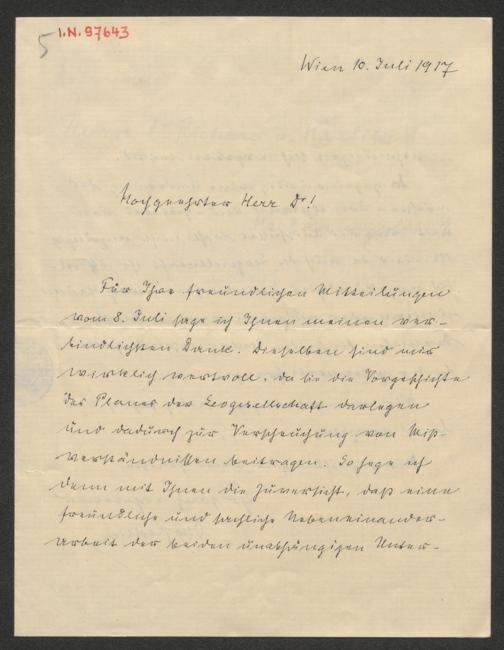 5 I.N. 97643
Wien 10. Juli 1917
Hochgeehrter Herr Dr!
Für Ihre freundlichen Mitteilungen
vom 8. Juli sage ich Ihnen meinen ver-
bindlichsten Dank. Dieselben sind mir
wirklich wertvoll, da sie die Vorgeschichte
des Planes der Leogesellschaft darlegen
und dadurch zur Verscheuchung von Miß-
verständnissen beitragen. So hege ich
denn mit Ihnen die Zuversicht, daß eine
freundliche und sachliche Nebeneinander-
arbeit der beiden unabhängigen Unter-